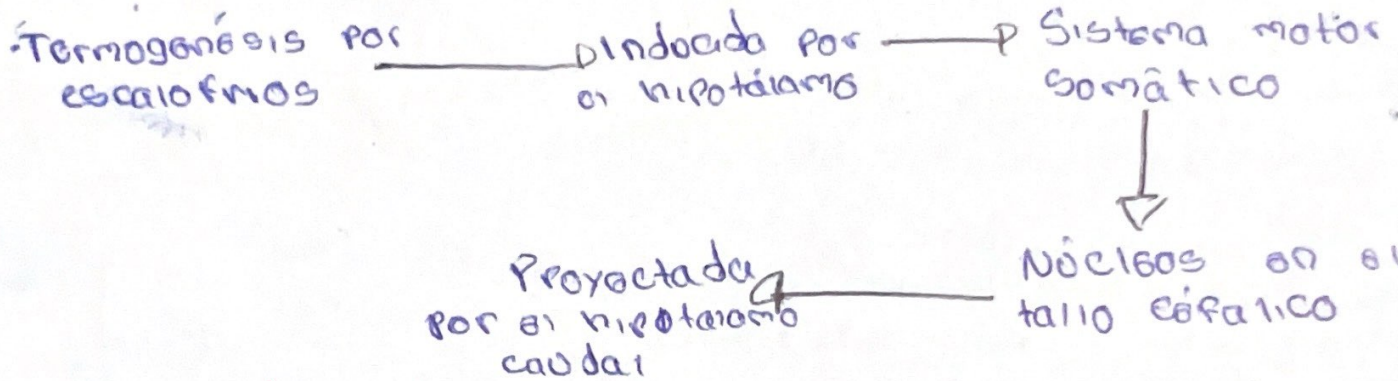 ·Termogenésis por
escalofrios
Inducida por
el hipotálamo
Sistema motor
somático
Núcleos en el
tallo céfalico
Proyectada
por el hipotalamo
caudal